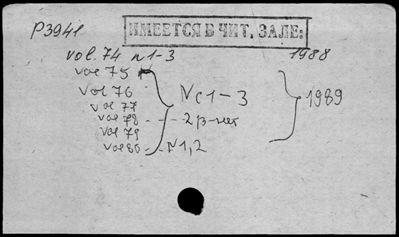 P3941
ИМЕЕТСЯ В ЧИТ. ЗАЛЕ:
vol. 74 N 1-3 1988
vol 75
vol 76 N 1-3 1989
vol 77
vol 78
vol 79
vol 80 - - N 1,2